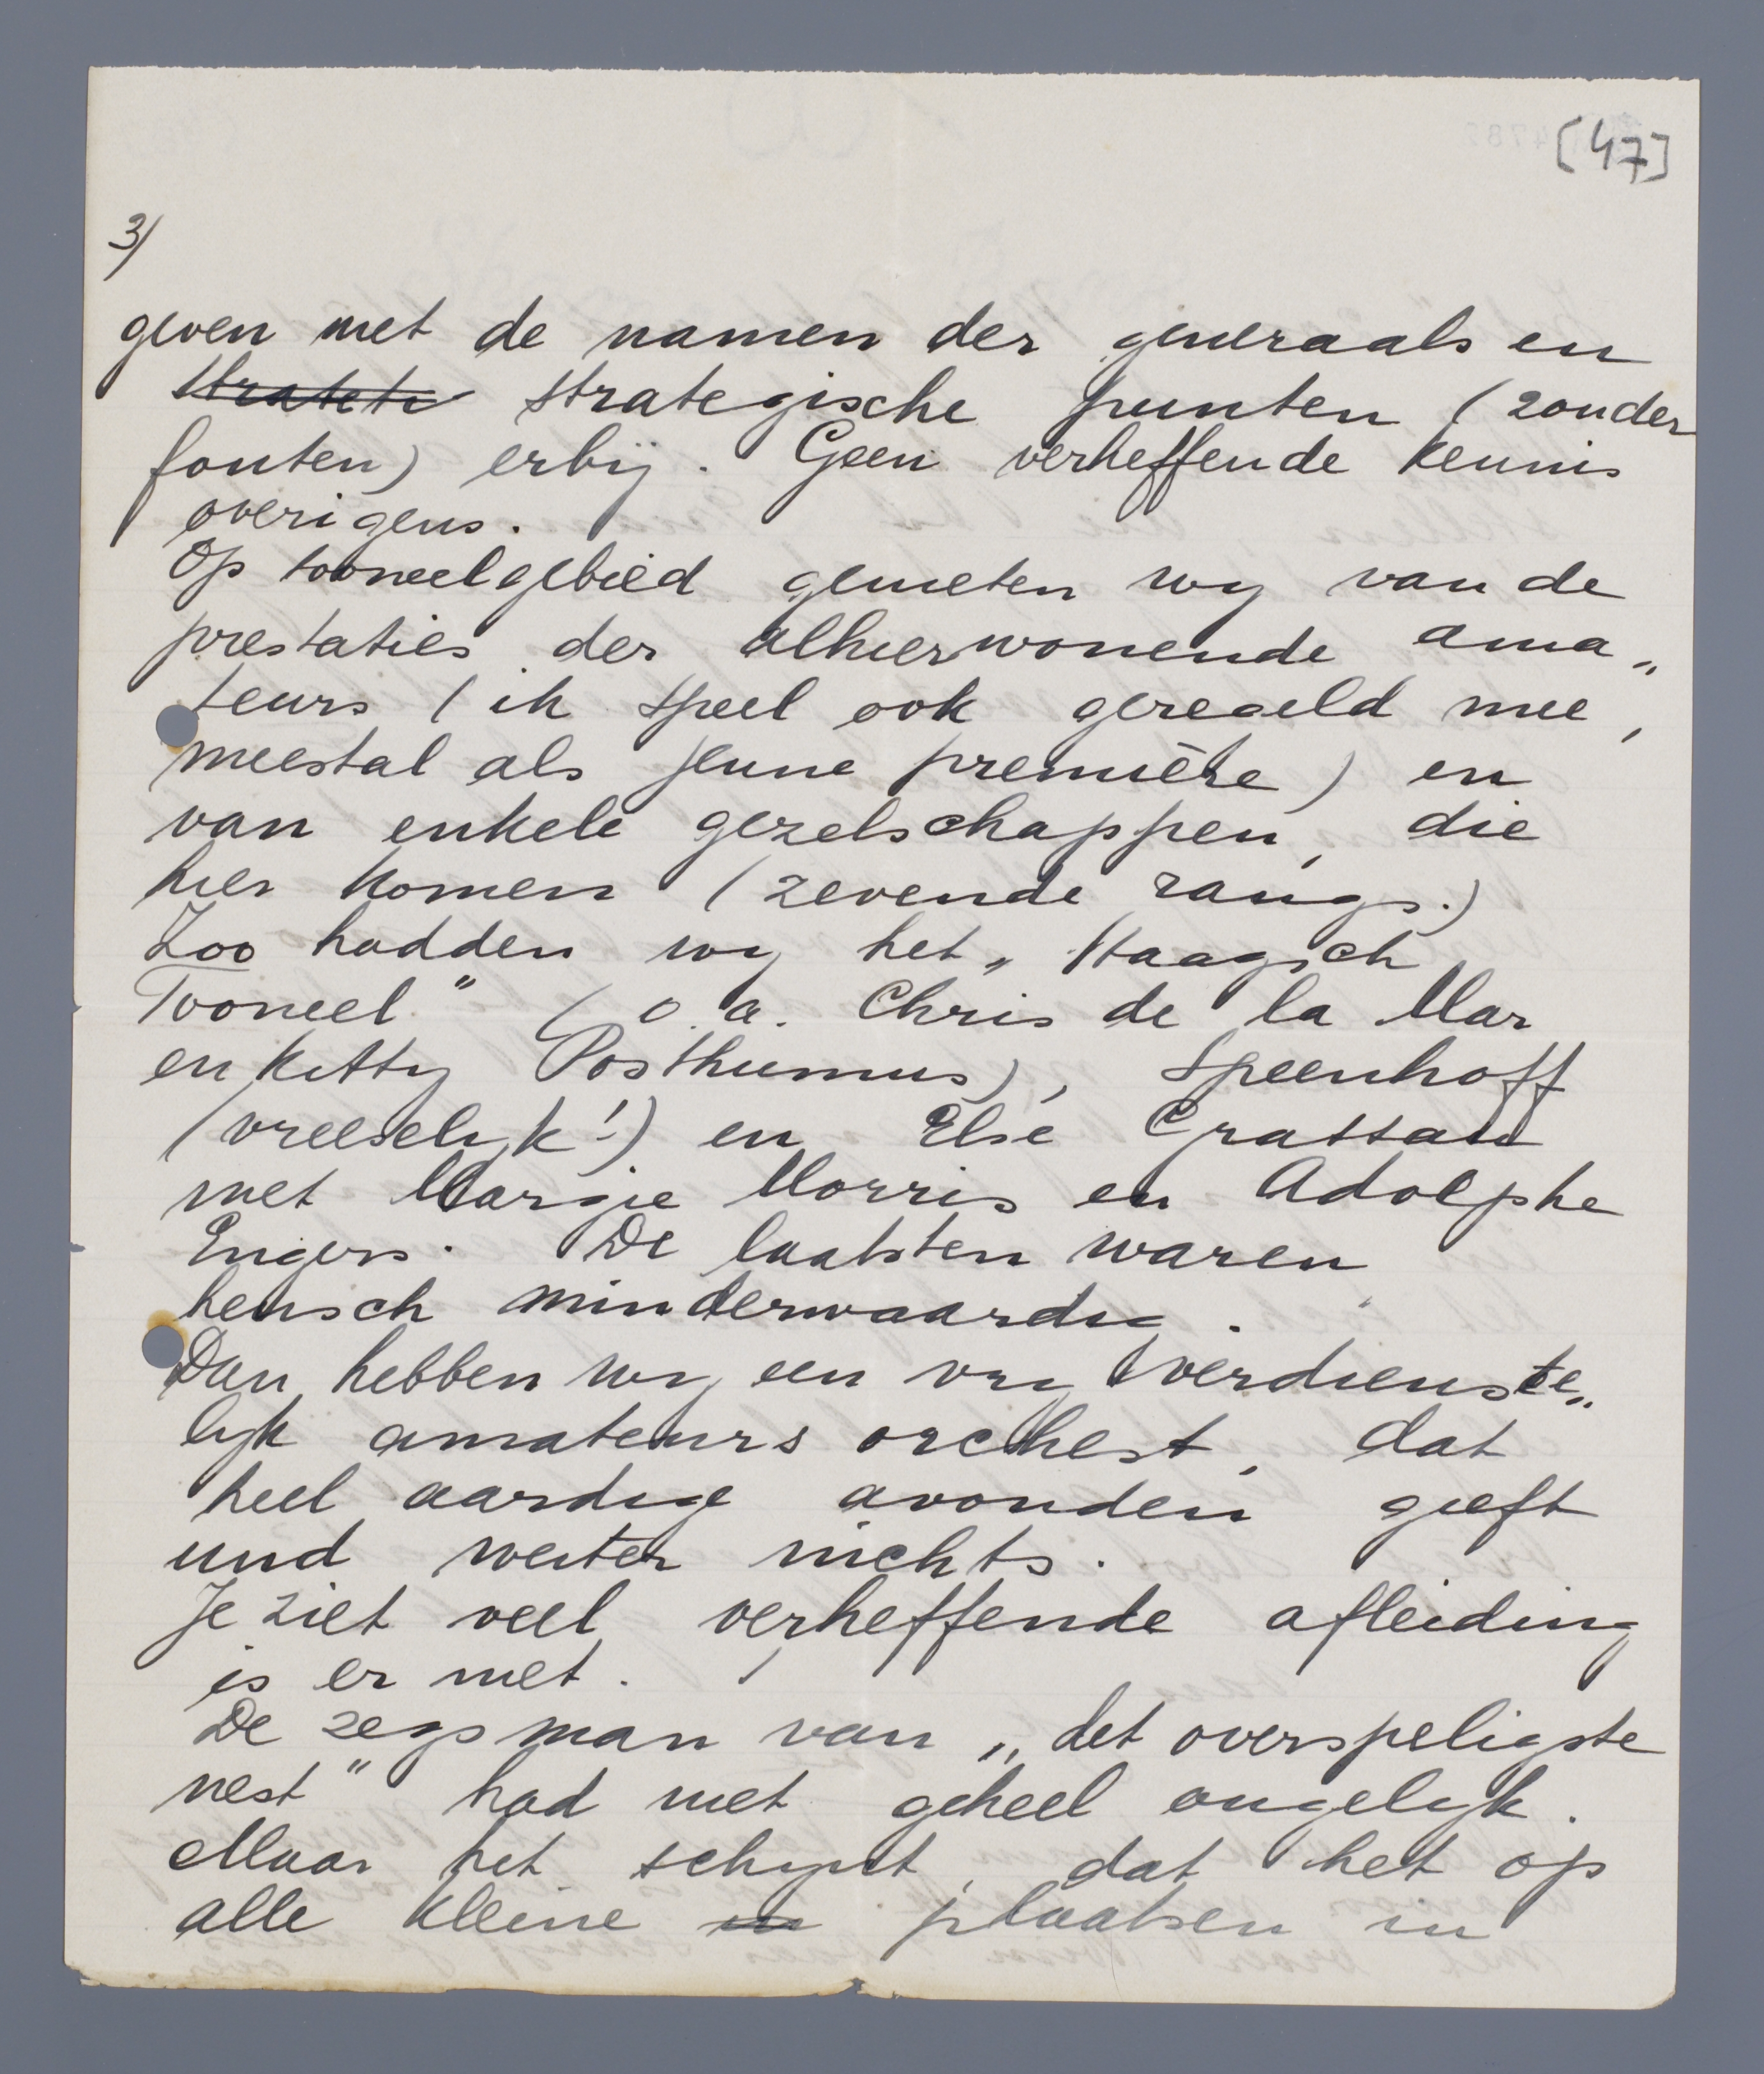 [47]
3)
geven met de namen der generaals en
strategische punten (zonder
fouten) erbij. Geen verheffende kennis
overigens.
Op tooneelgebied genieten wy van de
prestaties der alhierwonende ama„
teurs (ik speel ook geregeld mee,
meestal als jeune première) en
van enkele gezelschappen, die
hier komen (zevende rangs.)
Zoo hadden wy het „Haagsch
Tooneel" (o.a. Chris de la Mar
en Kitty Posthumus), Speenhoff
(vreeselyk!) en Else Grassau
met Margie Morris en Adolphe
Engers. De laatsten waren
heusch minderwaardig.
Dan hebben wy een vry verdienste„
lyk amateurs orchest, dat
heel aardige avonden geeft
und weiter nichts.
Je ziet veel verheffende afleiding
is er niet.
De zegsman van „het overspeligste
nest" had niet geheel ongelyk.
Maar het schynt, dat het op
alle kleine plaatsen in